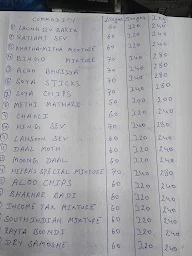 COMMODITY 200gm 500gm 1 kg
LAUNG SEV BARIK 60 120 240
RATLAMI SEV 60 120 240
KHATTA MITHA MIXTURE 60 120 240
BIKANO MIXTURE 70 140 280
ALOO BHUJIYA 70 140 280
SOYA STICKS 70 140 280
SOYA CHIPS 70 140 280
METHI MATHARI 50 100 200
CHAKLI 60 120 240
HING SEV 70 140 280
LAHSUN SEV 60 120 240
DAAL MOTH 60 120 240
MOONG DAAL 60 120 240
SPECIAL MIXTURE 70 140 280
ALOO CHIPS 60 120 240
BHAKHAR BADI 60 120 240
INCOME TAX MIXTURE 60 120 240
SOUTH INDIAN MIXTURE 60 120 240
RAYTA BOONDI 60 120 240
DRY SAMOSHE 60 120 240